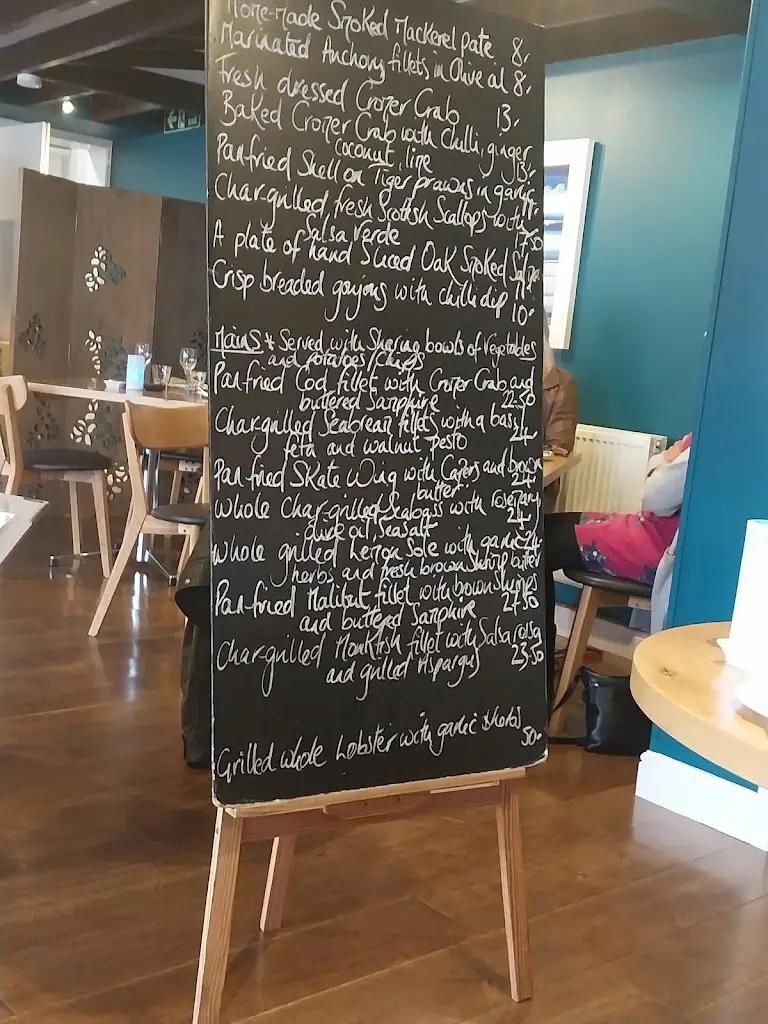 Home-made Smoked Mackerel pate 8.
Marinated Anchovy fillets in Olive oil 8.
Fresh dressed Cromer Crab 13.
Baked Cromer Crab with Chilli, ginger
coconut, lime 13.
Panfried Shell on Tiger prawns in garlic
Char-grilled fresh Scottish Scallops with
Salsa Verde 17.50
A plate of hand Sliced Oak Smoked
Crisp breaded goujons with chilli dip 10.
Mains * Served with Sharing bowls of vegetables
and potatoes/chips
Panfried Cod fillet with Cromer Crab and
buttered Samphire 22.50
Chargrilled Seabream fillets with a basil
feta and walnut pesto 24.
Pan fried Skate Wing with Capers and brown
butter. 24.
Whole Char-grilled Seabass with rosemary
olive oil, Seasalt 24.
Whole grilled Lemon Sole with garlic 24.
herbs and fresh brown Shrimp butter
Pan-fried Halibut fillet with brown Shrimps
and buttered Samphire 27.50
Char-grilled Monkfish fillet with Salsa rossa
and grilled Asparagus 23.50
Grilled whole Lobster with garlic & herbs
50.